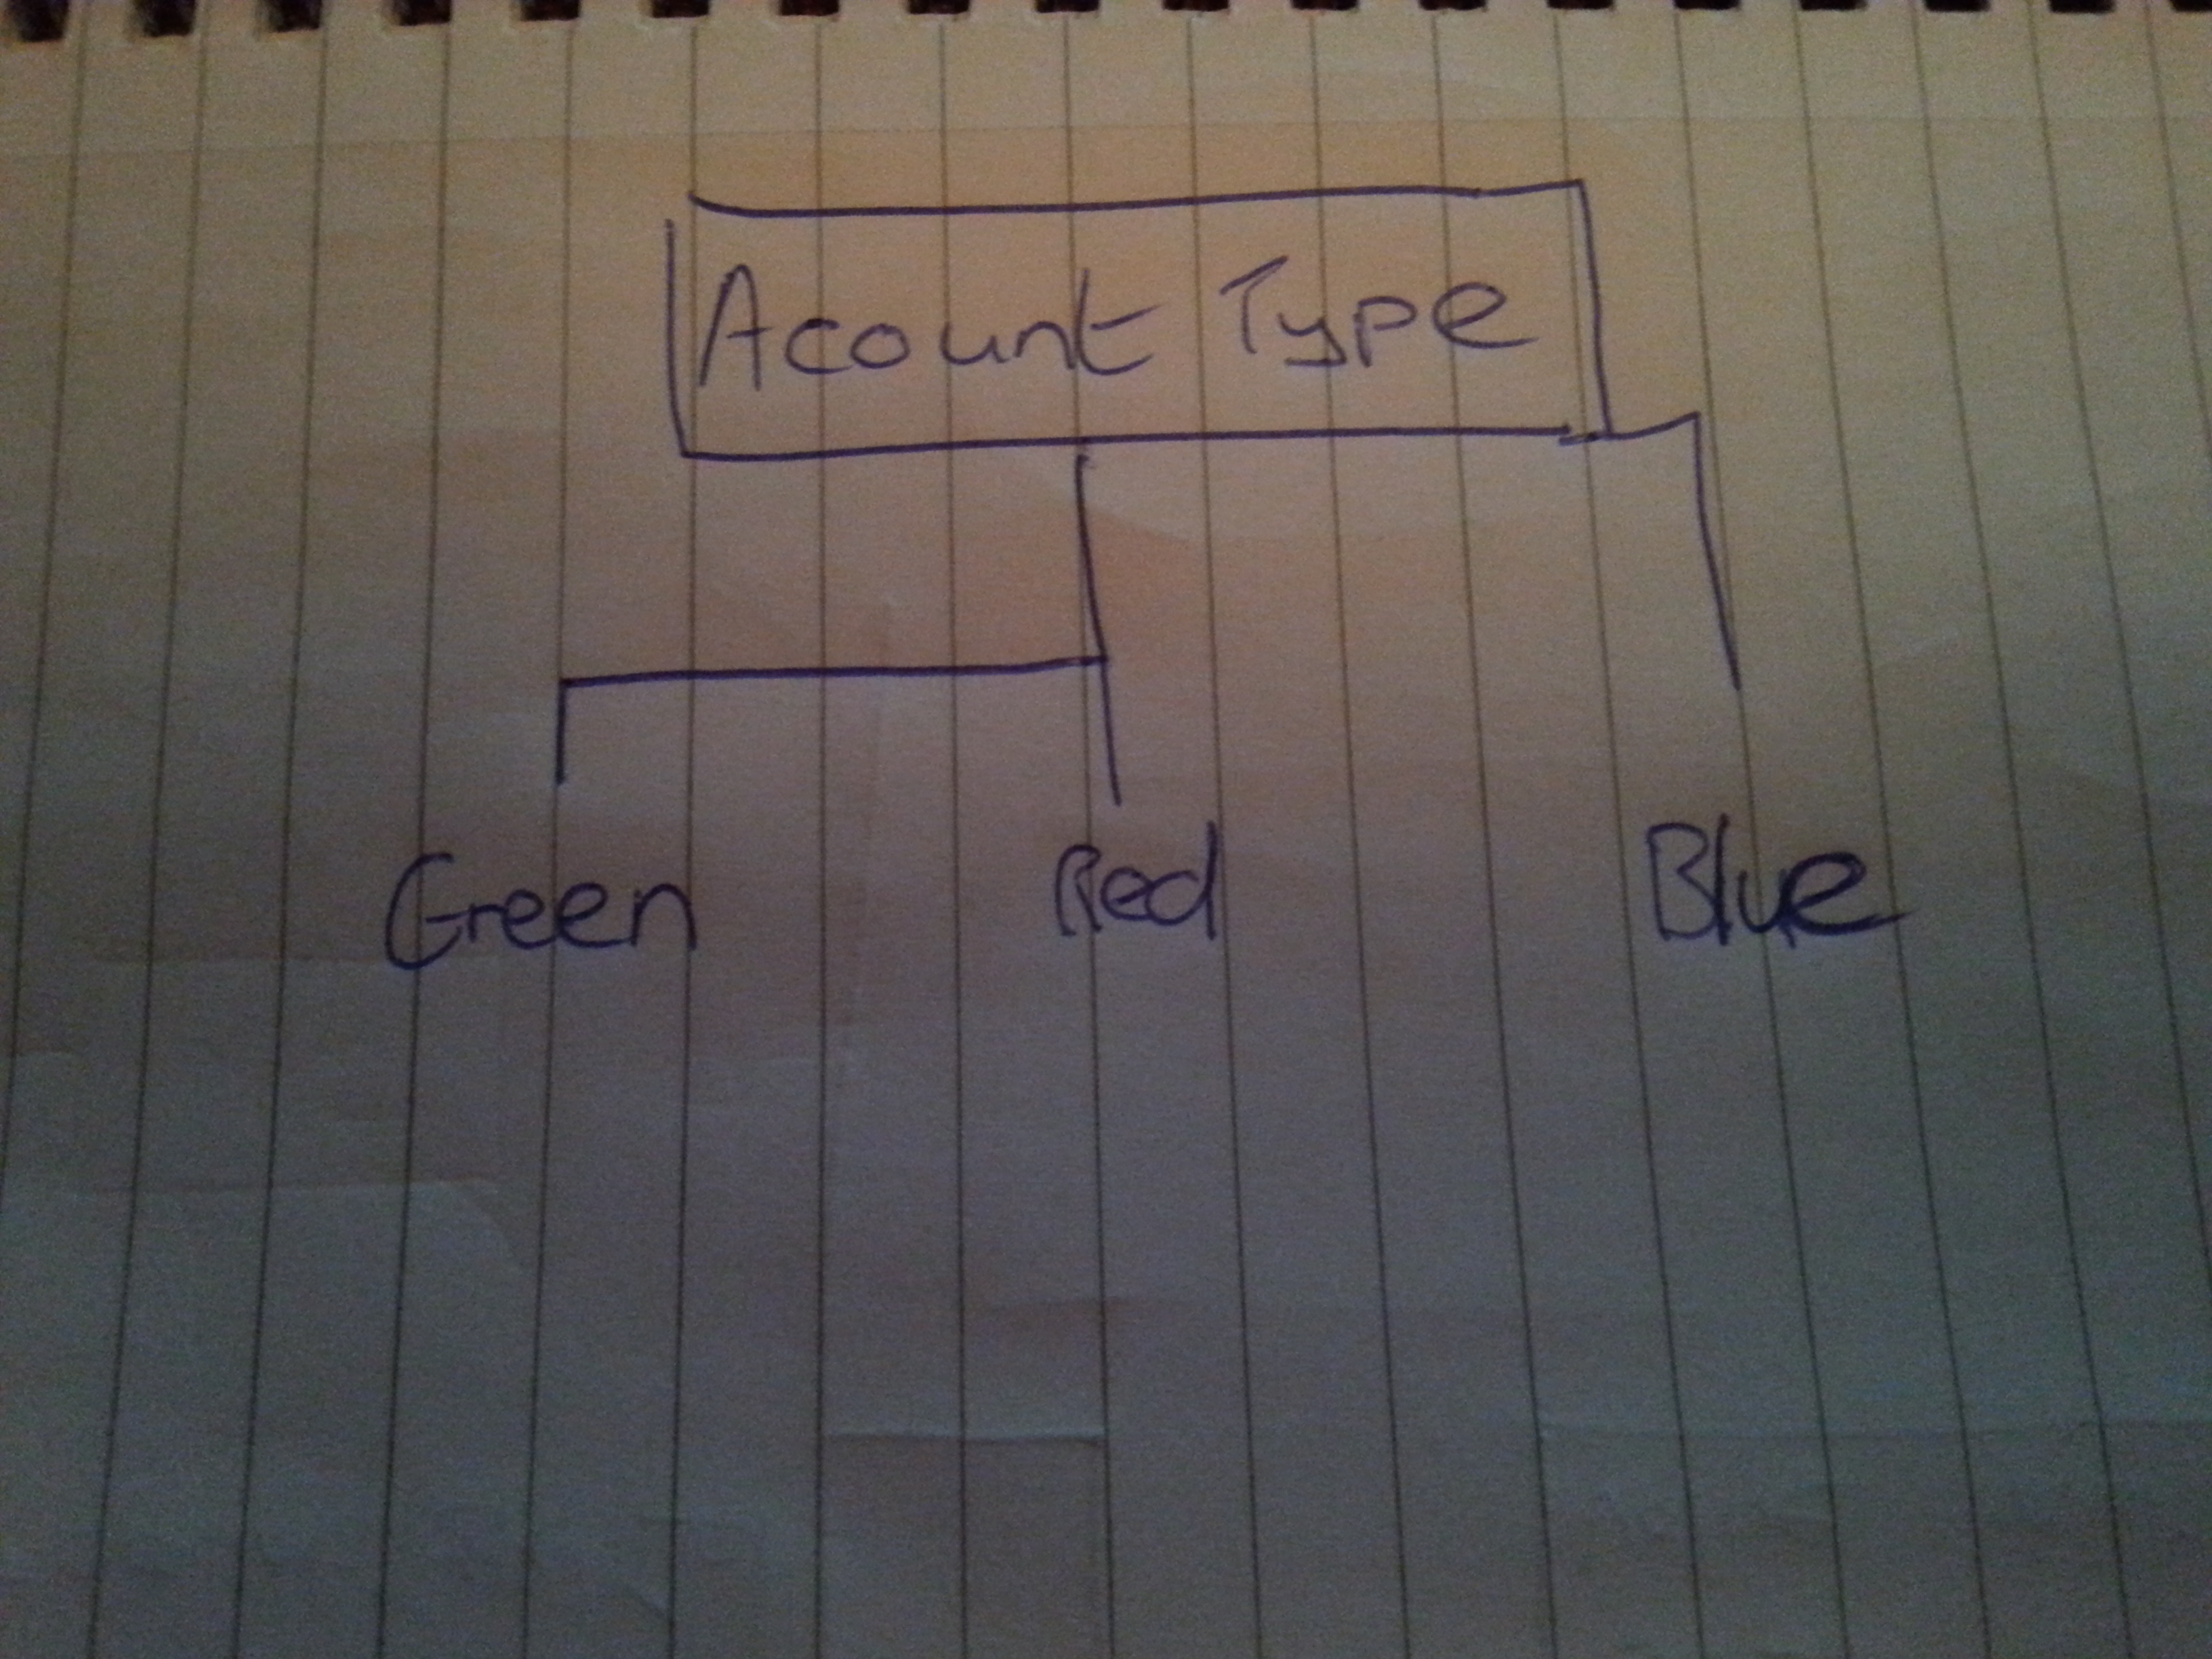 Acount Type
Green Red Blue